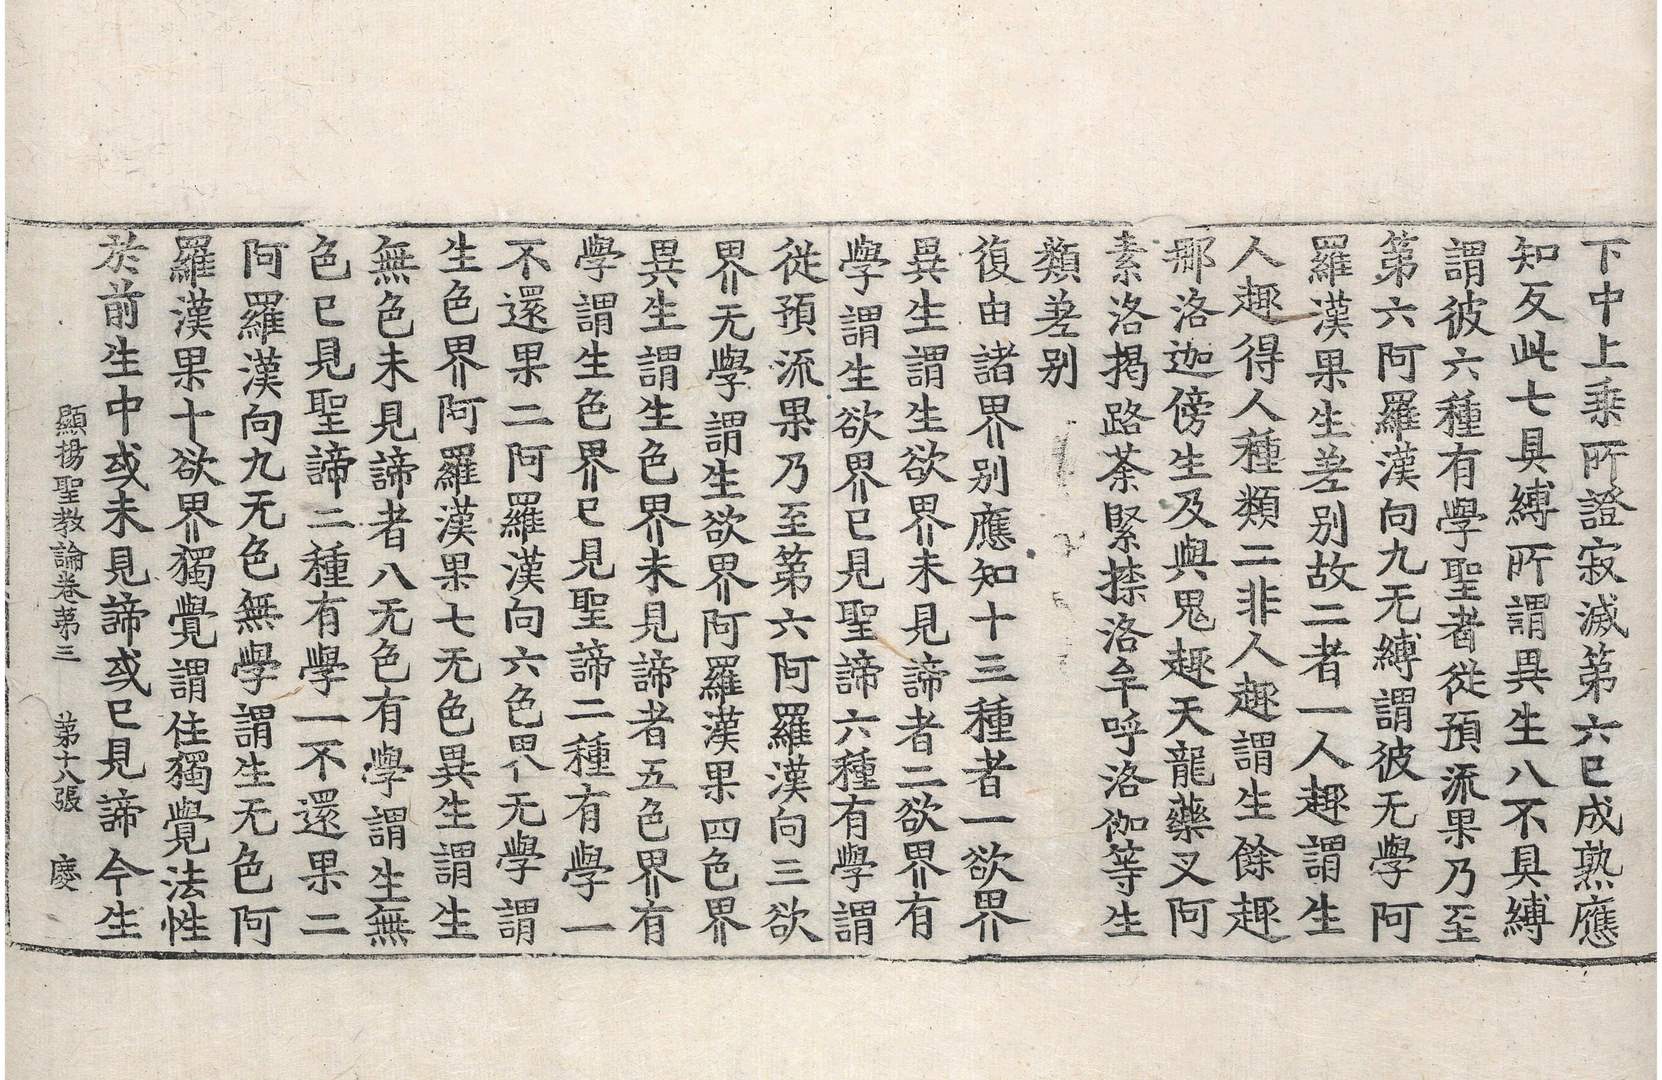 下中上乘所證寂滅第六已成熟應
知反此七具縛所謂異生八不具縛
謂彼六種有學聖者從預流果乃至
第六阿羅漢向九无縛謂彼无學阿
羅漢果生差別故二者一人趣謂生
人趣得人種類二非人趣謂生餘趣
那洛迦傍生及與鬼趣天龍藥叉阿
素洛揭路荼緊捺洛牟呼洛伽等生
類差別
復由諸界別應知十三種者一欲界
異生謂生欲界未見諦者二欲界有
學謂生欲界已見聖諦六種有學謂
從預流果乃至第六阿羅漢向三欲
界无學謂生欲界阿羅漢果四色界
異生謂生色界未見諦者五色界有
學謂生色界已見聖諦二種有學一
不還果二阿羅漢向六色界无學謂
生色界阿羅漢果七无色異生謂生
無色未見諦者八无色有學謂生無
色已見聖諦二種有學一不還果二
阿羅漢向九无色無學謂生无色阿
羅漢果十欲界獨覺謂住獨覺法性
於前生中或未見諦或已見諦今生
顯揚聖教論卷第三 第十八張 慶